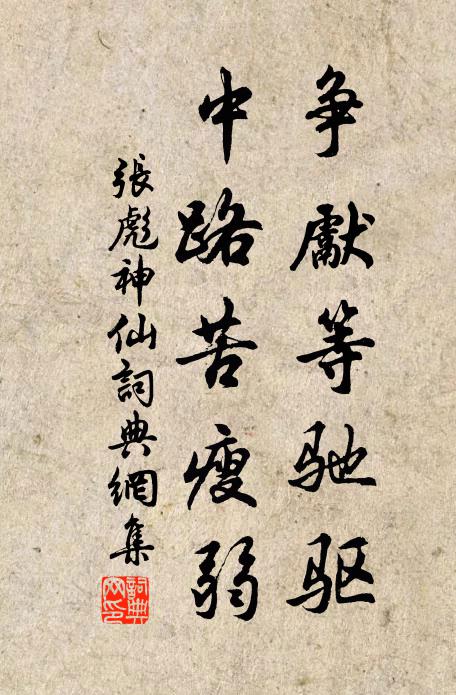 争獻等驰驱
中路苦瘦弱
張彪神仙詞典網集
詞典网印